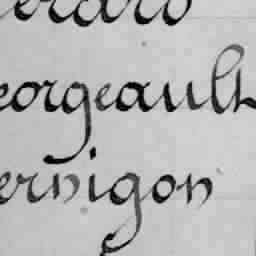 erard
eorgeault
ernigon